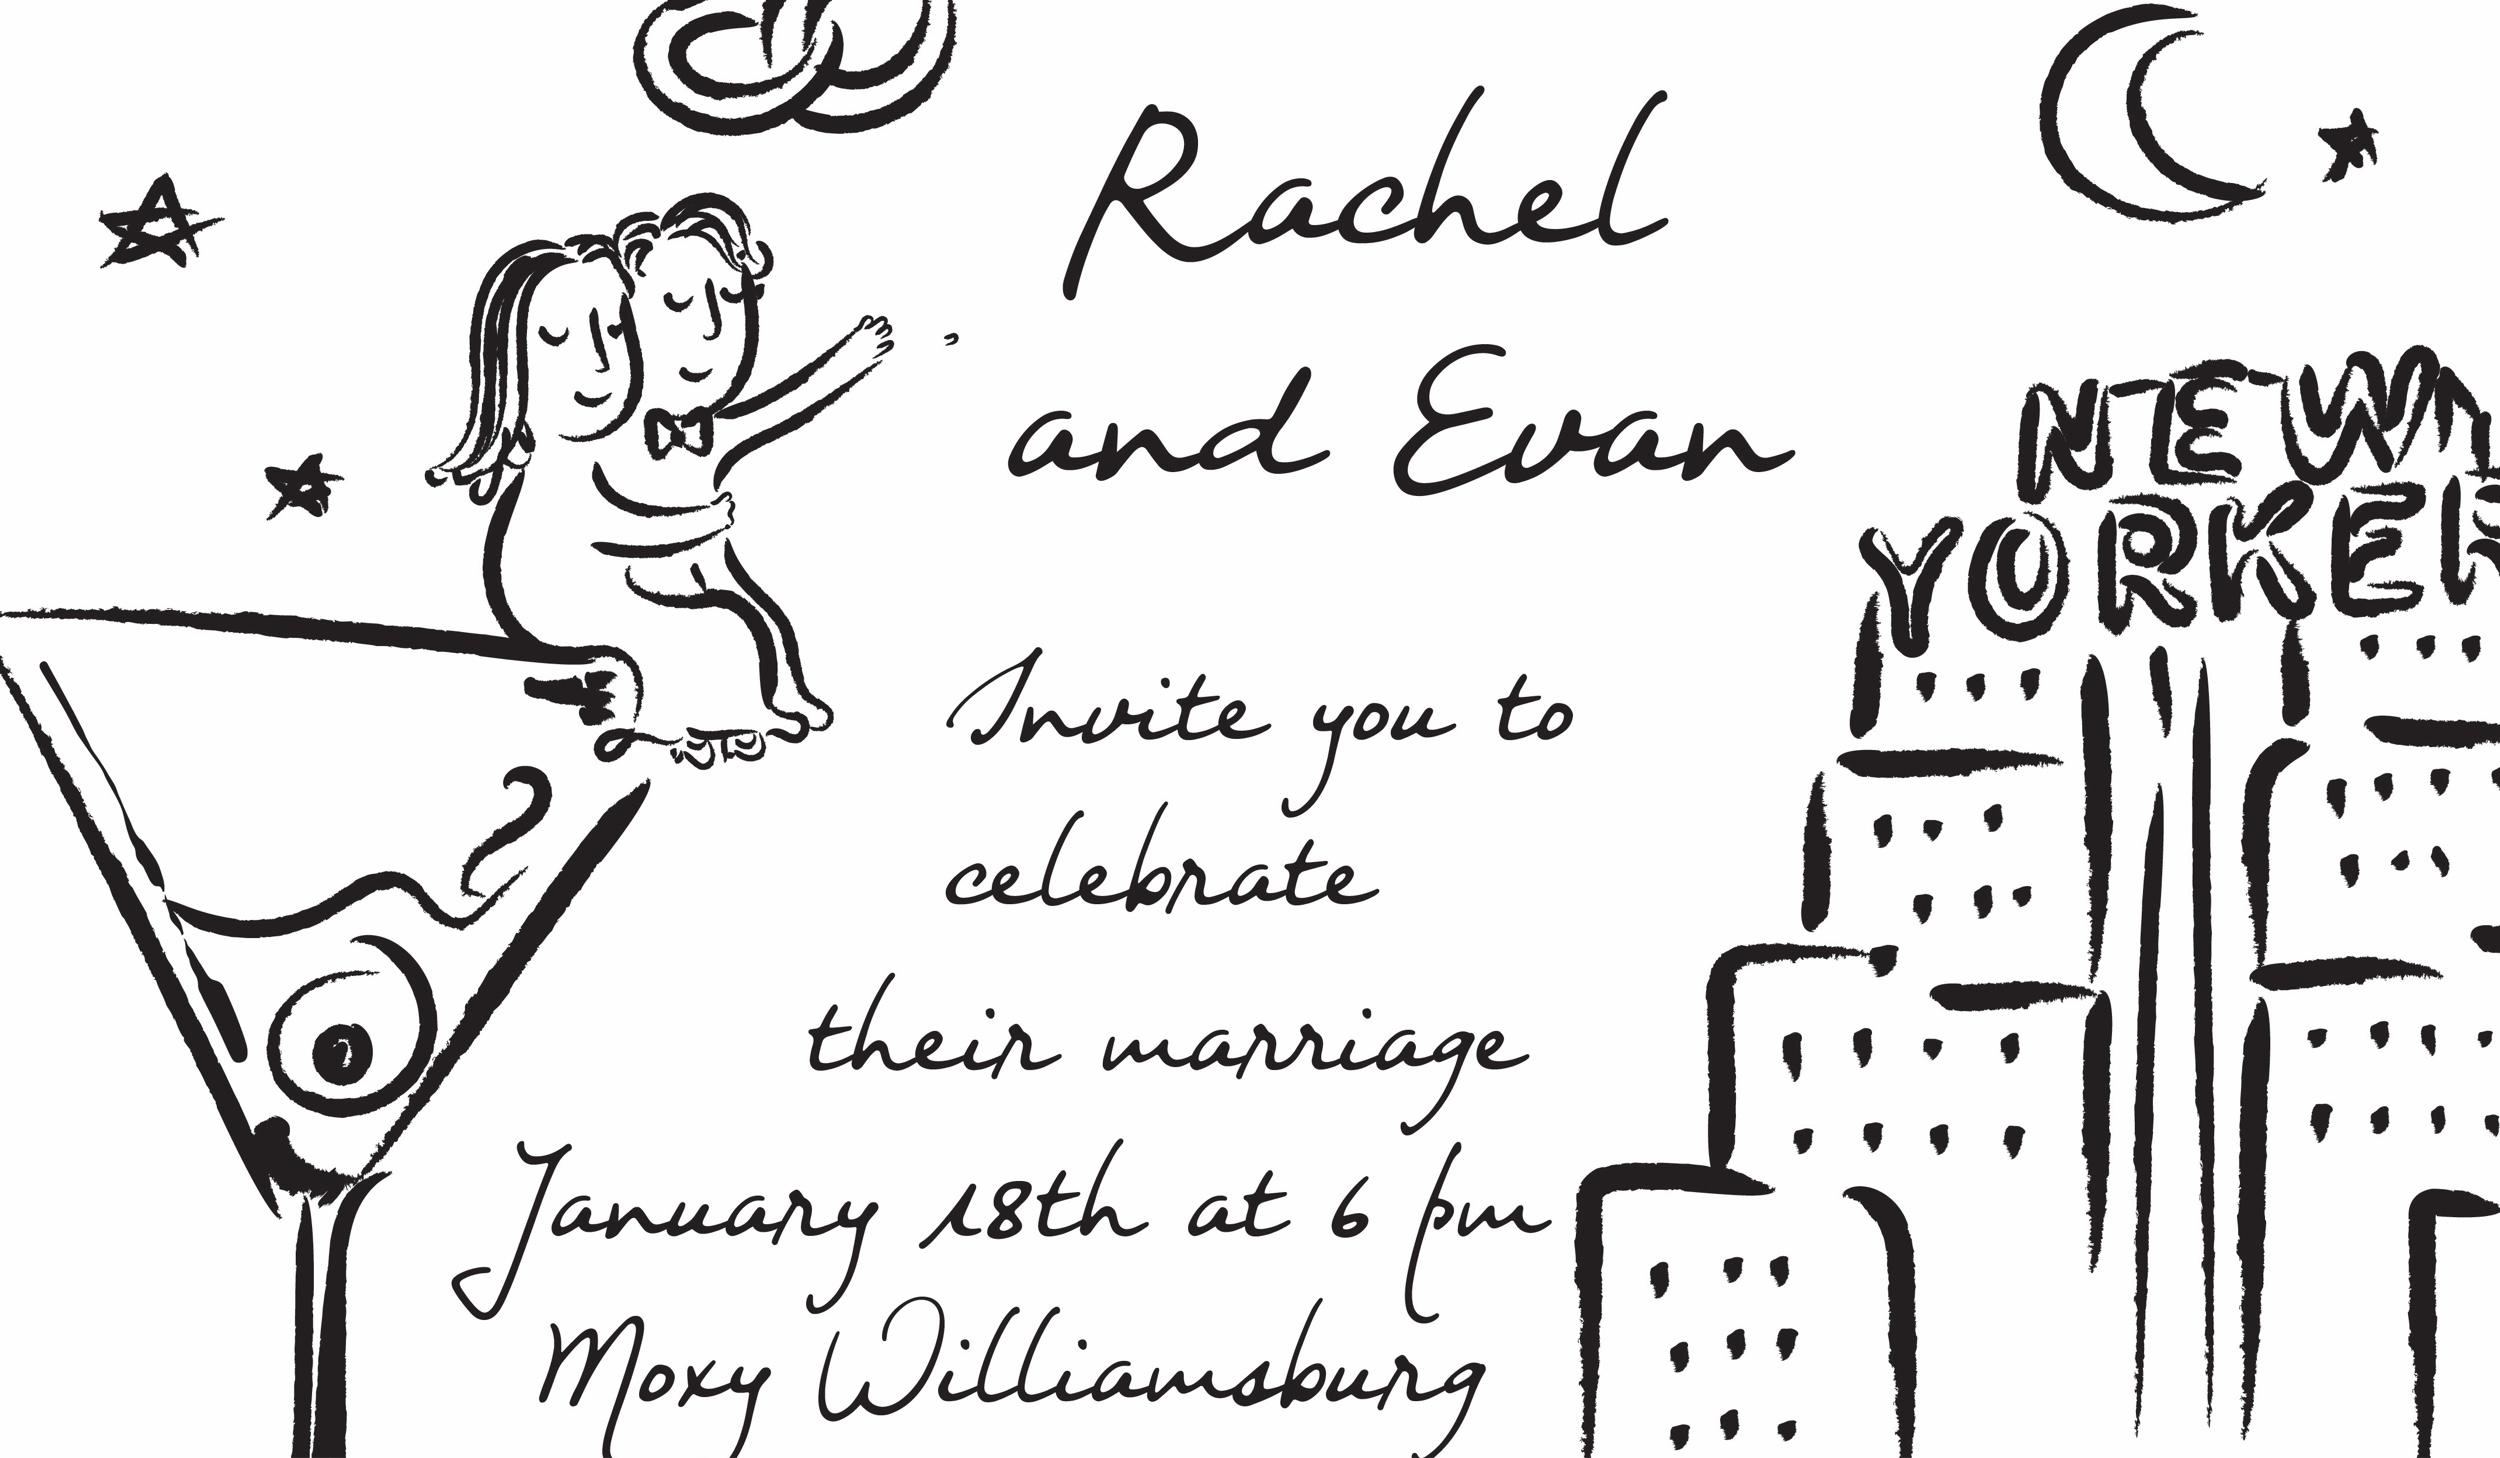 Rachel
and Evan
NEW
YORKER
Invite you to
celebrate
their marriage
January 18th at 6 pm
Moxy Williamsburg